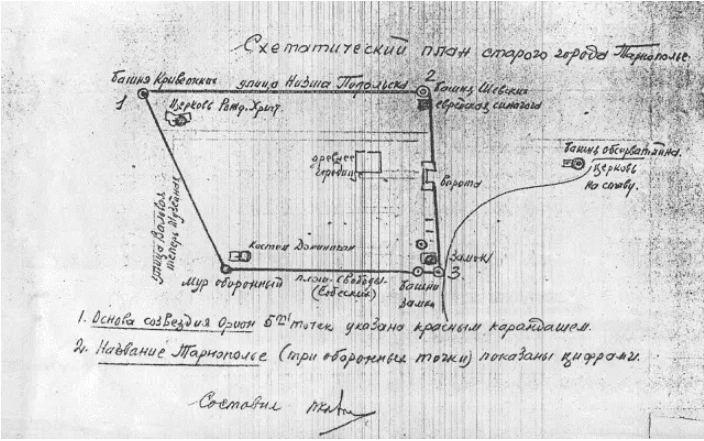 Схематический план старого города Тарнополье.
Башня Кривеккня
улица Низша Подольска
2
Башня Шевских
еврейская синагога
1
Церковь Рожд. Христ.
древнее
городище
ворота
Башня обсерватийна.
Церковь
на ставу.
улица Валовая
теперь Музейная
Костел Доминикан
Замок
3
Мур оборонный
площ. Свободы
(Собеский)
Башни
Замка
1. Основа созвездия Орион 5ти точек указана красным карандашем.
2. Название Тарнополье (три оборонных точки) показаны цифрами.
Составил